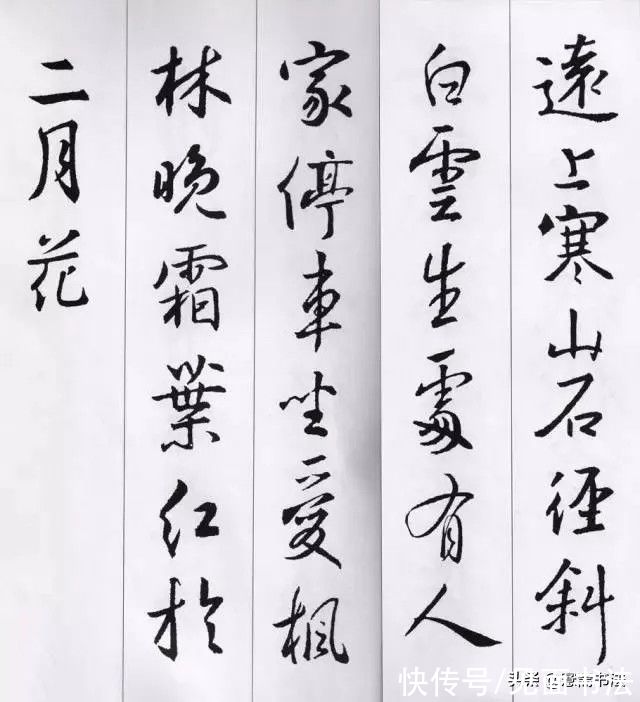 遠上寒山石徑斜
白雲生處有人
家停車坐愛楓
林晚霜葉紅於
二月花
快传号/见面书法